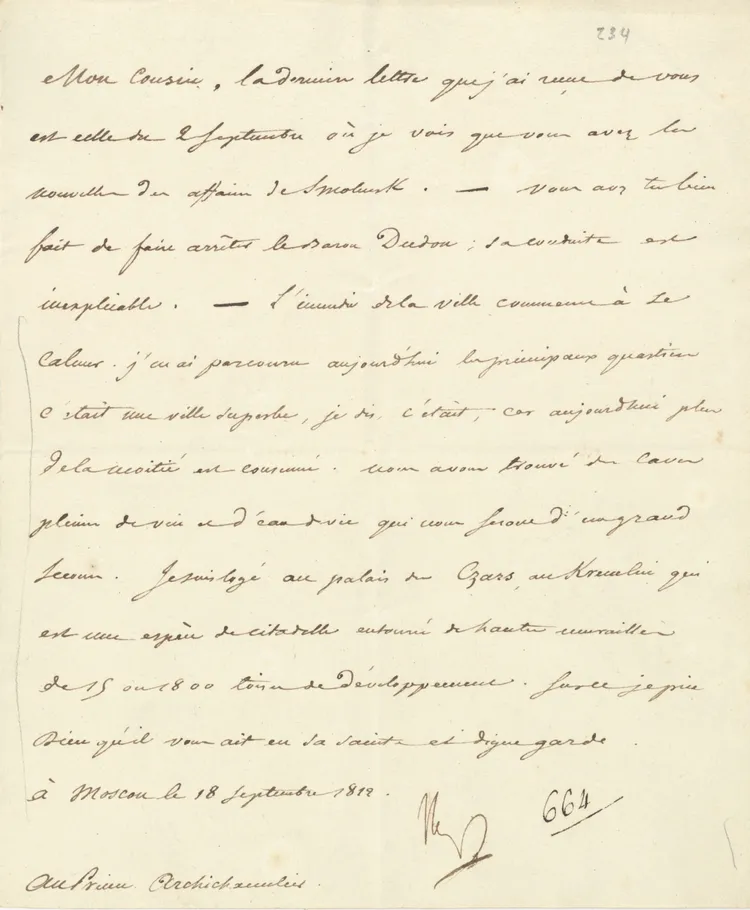 234
Mon Cousin, la dernière lettre que j'ai reçue de vous
est celle du 2 Septembre où je vois que vous avez les
nouvelles des affaires de Smolensk. — vous avez très bien
fait de faire arrêter le Baron Dudon ; sa conduite est
inexplicable. — L'incendie de la ville commence à se
calmer. j'en ai parcouru aujourd'hui les principaux quartiers
c'était une ville superbe, je dis, c'était, car aujourd'hui plus
de la moitié est consumé. nous avons trouvé des caves
pleines de vin et d'eau de vie qui nous seront d'un grand
secours. Je suis logé au palais des Czars, au Kremlin qui
est une espèce de citadelle entourée de hautes murailles
de 15 ou 1800 toises de développement. Sur ce je prie
Dieu qu'il vous ait en sa sainte et digne garde.
à Moscou le 18 Septembre 1812.
Np
664
Au Prince Archichancelier.